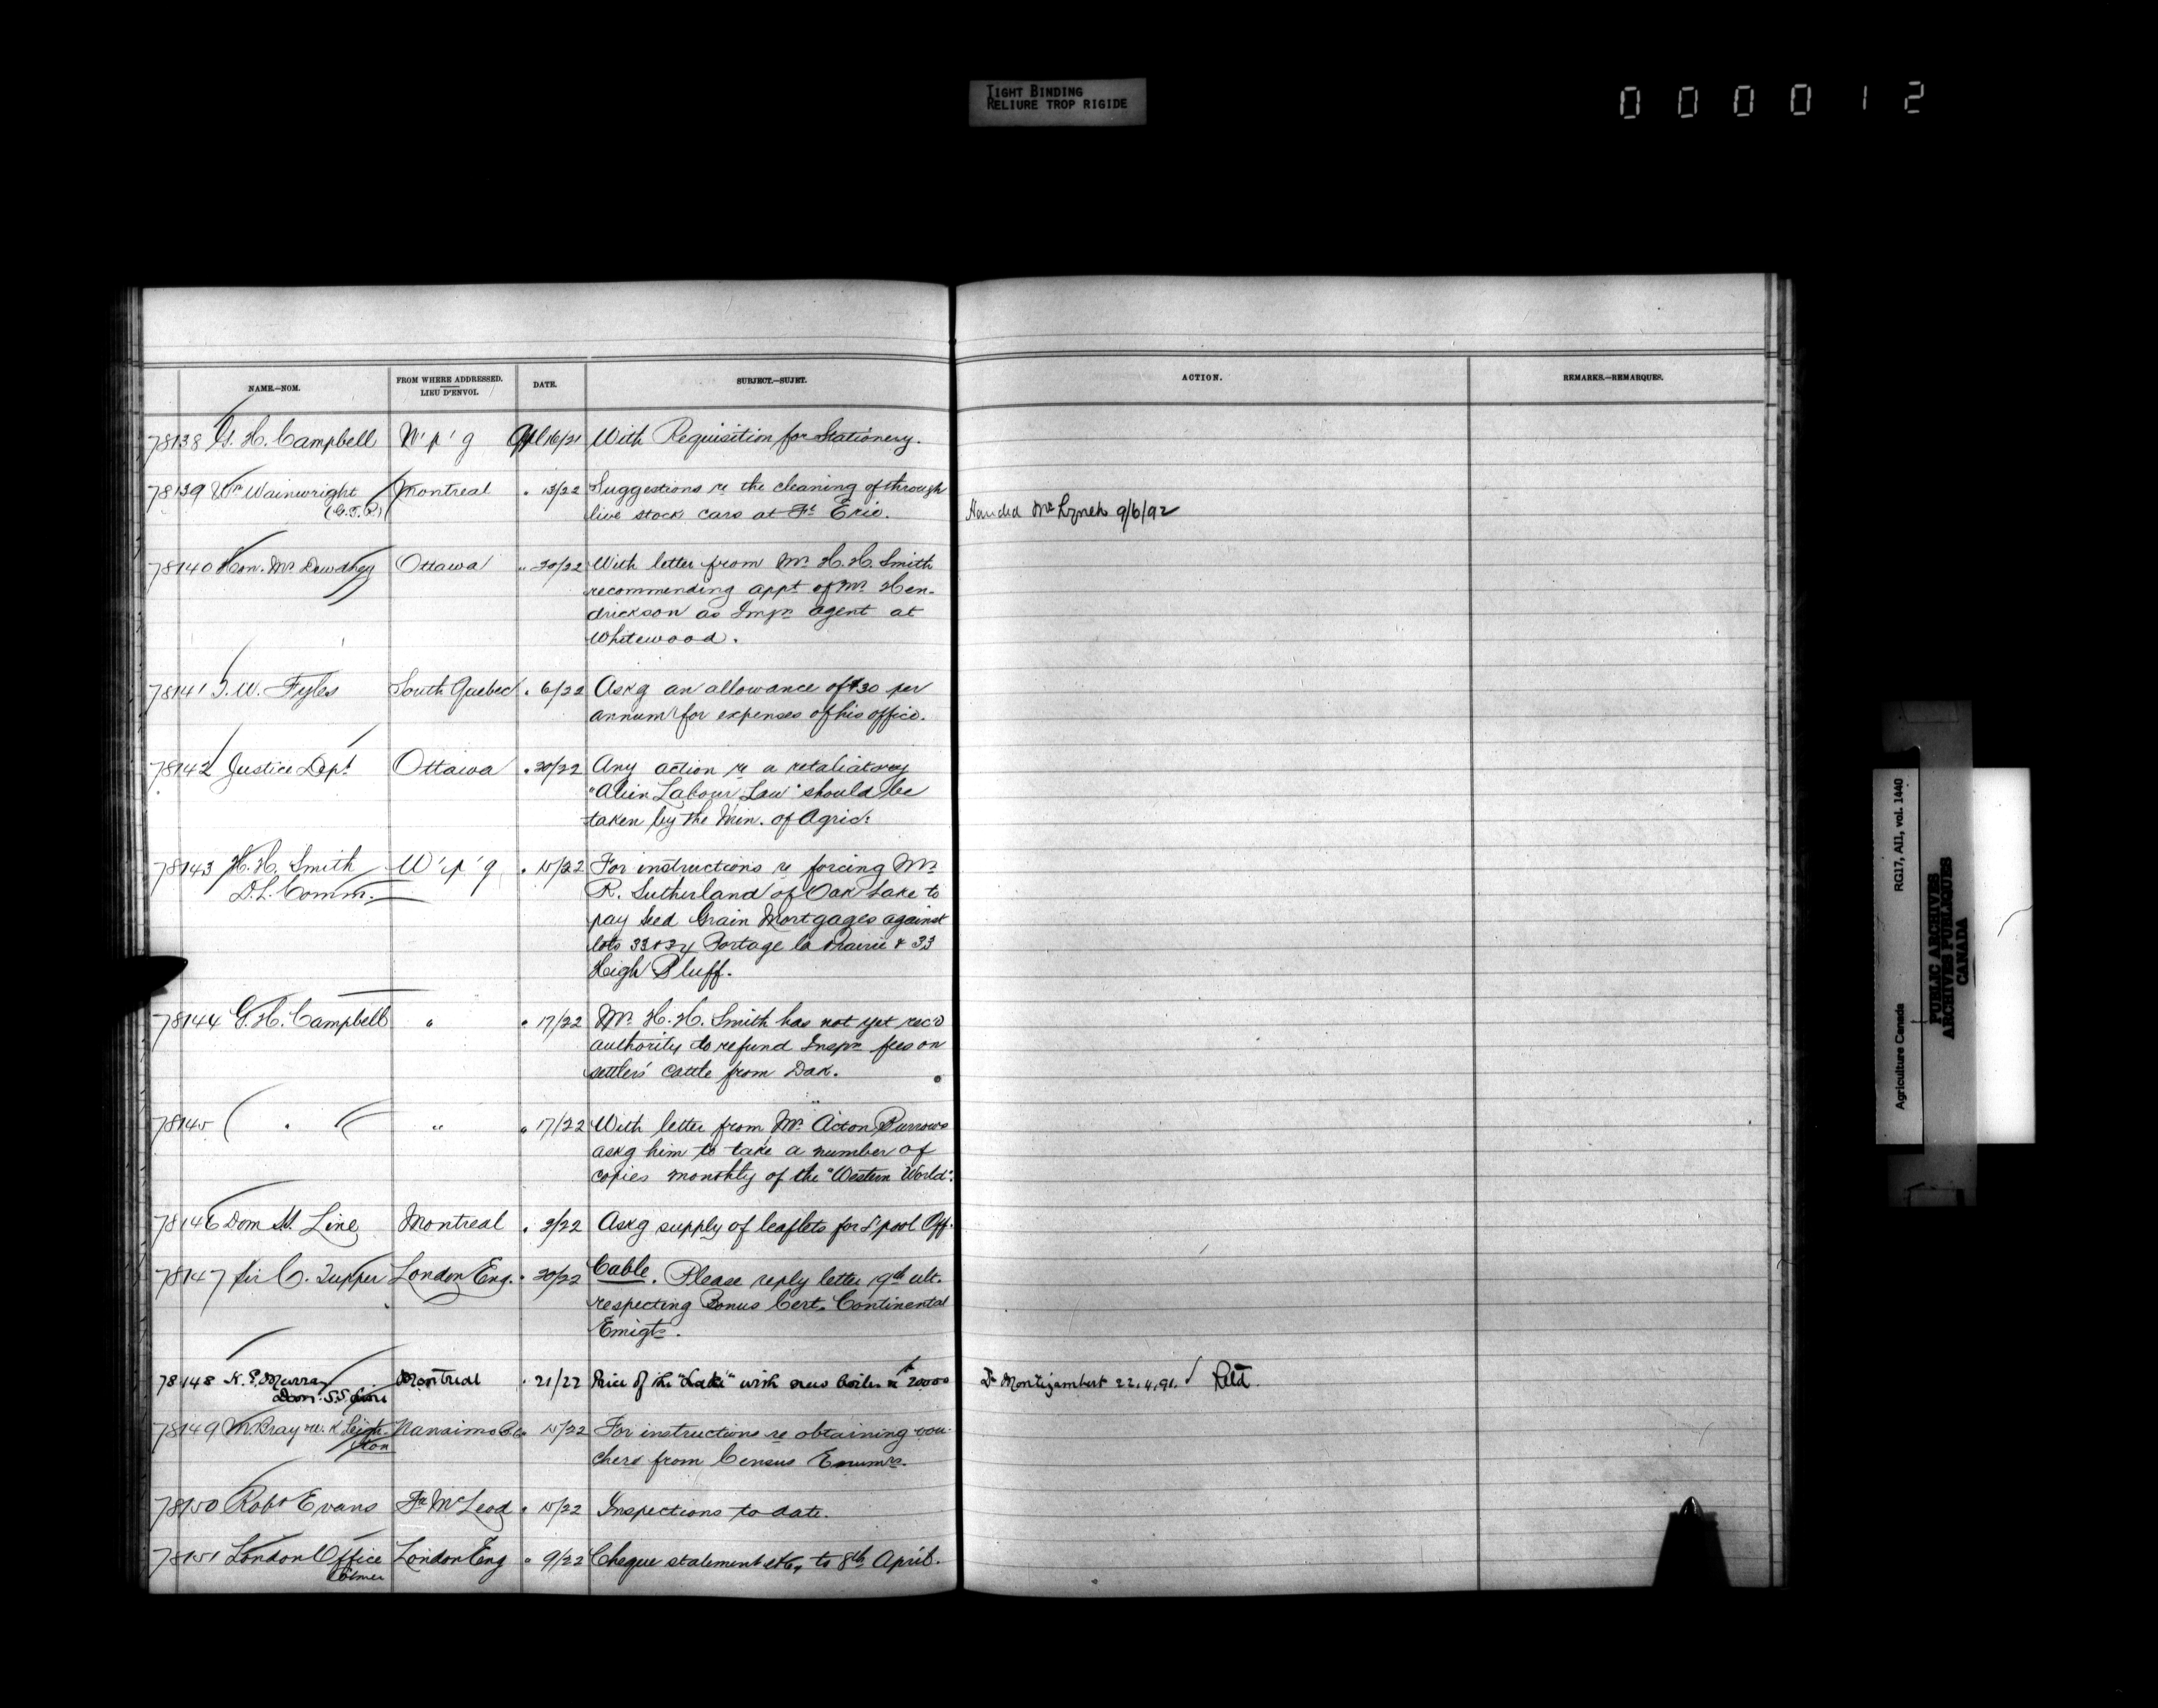 TIGHT BINDING
RELIURE TROP RIGIDE
000012
NAME.—NOM.
FROM WHERE ADDRESSED.
LIEU D'ENVOI.
DATE.
SUBJECT.—SUJET.
ACTION.
REMARKS.—REMARQUES.
78138 G. H. Campbell W'p'g Apl 16/21 With Requisition for Stationery.
78139 Wm Wainwright Montreal " 13/22 Suggestions re the cleaning of through
(G.T.R.) live stock cars at Ft Erie. Handed Mr Lynch 9/6/92
78140 Hon. Mr. Dewdney Ottawa " 20/22 With letter from Mr. H. H. Smith
recommending appt of Mr. Hen-
drickson as Immn agent at
Whitewood.
78141 T. W. Fyles South Quebec " 6/22 Askg an allowance of $30 per
annum for expenses of his office.
78142 Justice Dept Ottawa " 20/22 Any action re a retaliatory
"Alien Labour Law" should be
taken by the Min. of Agric.
78143 H. H. Smith W'p'g " 15/22 For instructions re forcing Mr.
D. L. Comm. R. Sutherland of Oak Lake to
pay Seed Grain Mortgages against
lots 33 & 34 Portage la Prairie & 33
High Bluff.
78144 G. H. Campbell " " 17/22 Mr. H. H. Smith has not yet rec'd
authority to refund Inspn fees on
settlers' cattle from Dak.
78145 " " " 17/22 With letter from Mr. Acton Burrows
askg him to take a number of
copies monthly of the "Western World".
78146 Dom SS. Line Montreal " 2/22 Askg supply of leaflets for L'pool Off.
78147 Sir C. Tupper London Eng. " 20/22 Cable. Please reply letter 19th ult.
respecting Bonus Cert. Continental
Emigts.
78148 K. P. Murray Montreal " 21/22 Price of the "Lake" with new boiler is 20000 Dr Montizambert 22.4.91. √ Retd.
Dom. S.S. Line
78149 M. Bray & W. K Leigh- Nanaimo B.C. 15/22 For instructions re obtaining vou-
ton chers from Census Enumrs.
78150 Robt Evans Ft McLeod " 15/22 Inspections to date.
78151 London Office London Eng " 9/22 Cheque statement etc, to 8th April.
Colmer
RG17, AII, vol. 1440
Agriculture Canada
PUBLIC ARCHIVES
ARCHIVES PUBLIQUES
CANADA